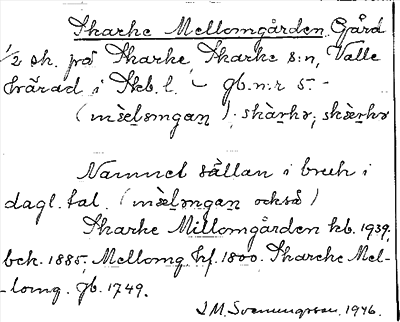 Skarke Mellomgården Gård
1/2 sk. på Skarke, Skarke s:n, Valle
härad i Skb. l. – gb. n:r 5. –
(mèləmgan); skàrkə; skæ̀rkə
Namnet sällan i bruk i
dagl. tal. (mèləmgan också)
Skarke Millomgården kb. 1939,
bck. 1885; Mellomg hf. 1800. Skarcke Mel-
-lomg. jb. 1749.
J. M. Svenungsson. 1946.